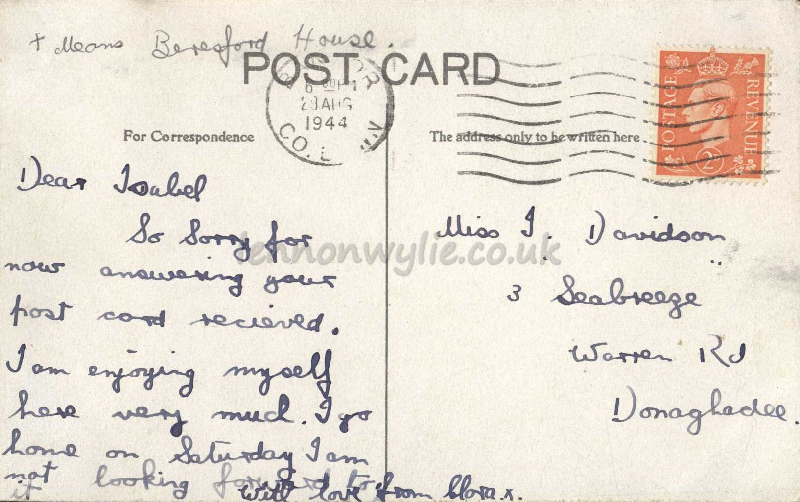 + Means Beresford House.
POST CARD
6 00 PM
29 AUG
1944
CO.
For Correspondence
The address only to be written here.
POSTAGE
REVENUE
2D
Dear Isabel
So Sorry for
now answering your
post card recieved.
I am enjoying myself
here very much. I go
home on Saturday I am
not looking forward to
it
With love from Clora.x.
Miss I. Davidson
3 Seabreeze
Warren Rd
Donaghadee.
lennonwylie.co.uk